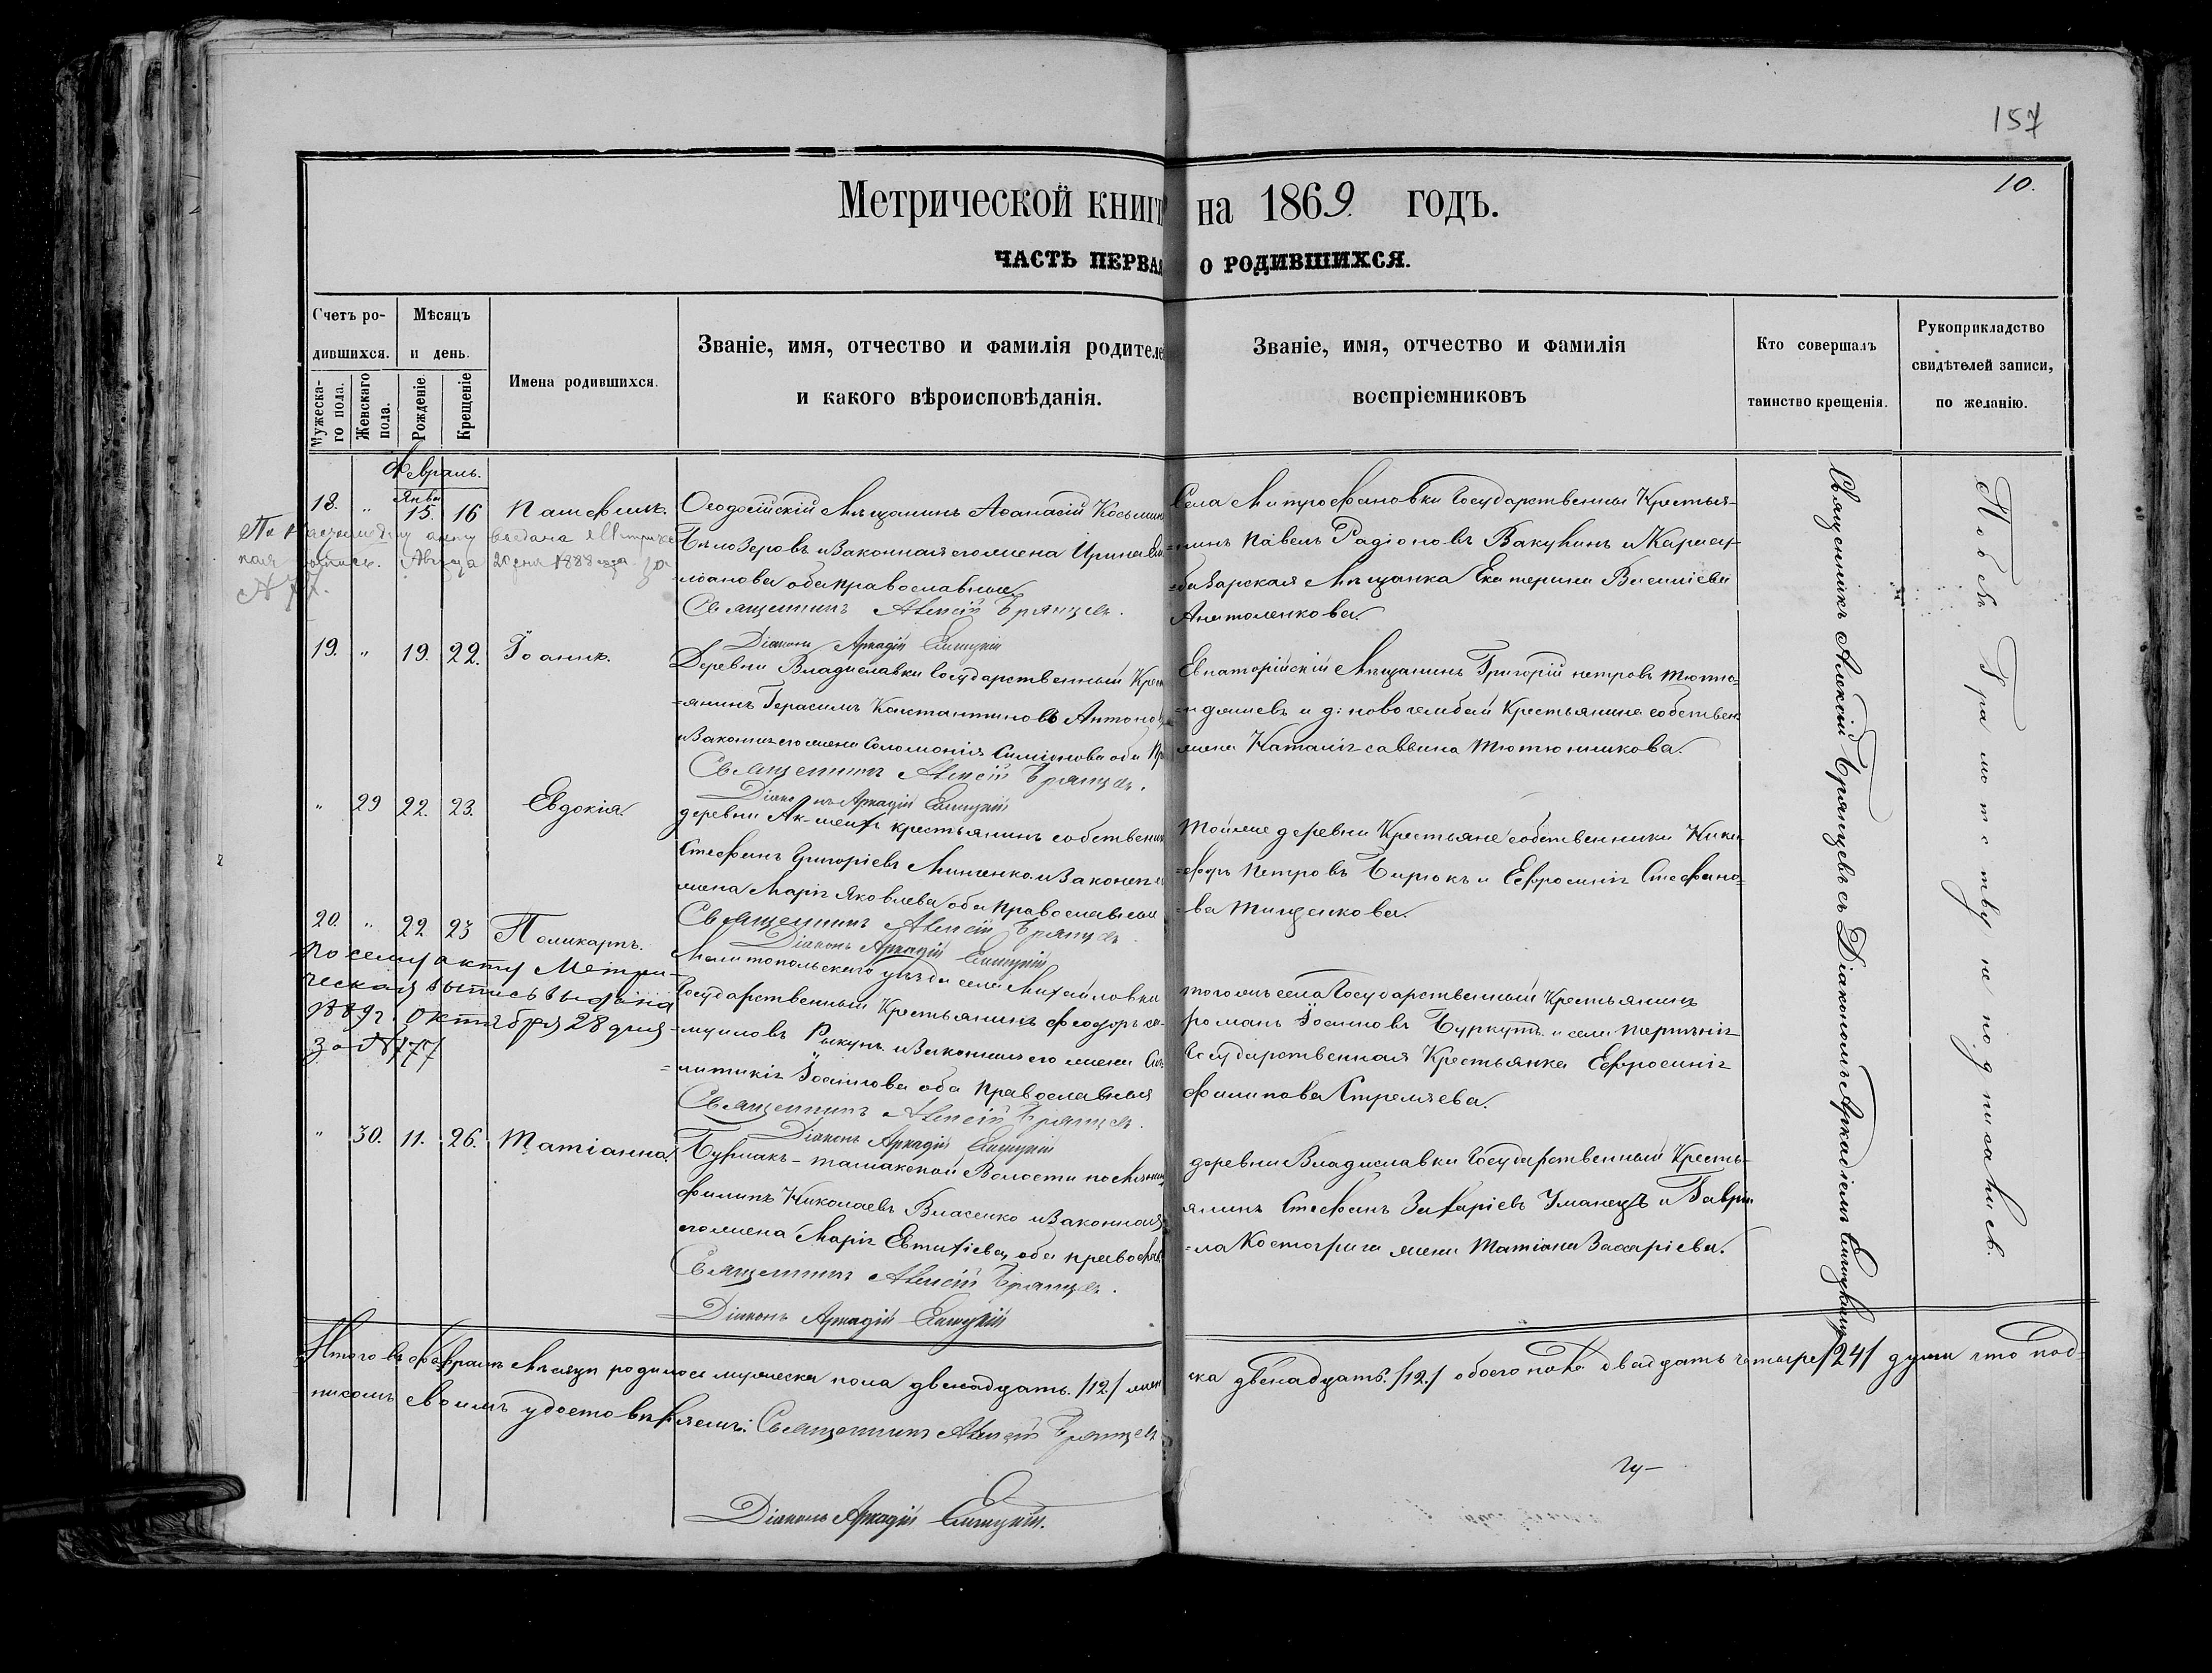 157
10.
Метрической книги на 1869. годъ.
ЧАСТЬ ПЕРВАЯ О РОДИВШИХСЯ.
Счетъ родившихся.
Мужескаго пола.
Женскаго пола.
Мѣсяцъ и день.
Рожденіе.
Крещеніе
Имена родившихся.
Званіе, имя, отчество и фамилія родителе
и какого вѣроисповѣданія.
Званіе, имя, отчество и фамилія
воспріемниковъ
Кто совершалъ
таинство крещенія.
Рукоприкладство
свидѣтелей записи,
по желанію.
Февраль.
18. " Янва 15. 16
Ѳеодосійскій Мѣщанинъ Аѳанасій Косьмин
Бѣлозеровъ и Законная его жена Ирина
оба православные
Священникъ Алексій Брянцевъ.
Діаконъ Аркадій
Села Митрофановки Государственный Крестья-
=нинъ Павелъ Радіоновъ Вакулинъ и Карасу-
=базарская Мѣщанка Екатерина Василіева
Анатоленкова.
выдана Метриче
ская выпись. Августа 20 дня 1888 года за
№ 77.
19. " 19. 22. Іоаннъ.
Деревни Владиславки Государственный Крест
=янинъ Герасимъ Константиновъ Антонов
и Законная его жена Соломонія Симіонова оба Пр
Священникъ Алексій Брянцевъ.
Діаконъ Аркадій
Евпаторійскій Мѣщанинъ Григорій петровъ
и д: Крестьянина собствен
жена Наталія саввина Тютюнникова.
" 29 22. 23. Евдокія.
деревни Ак- крестьянинъ собственник
Стефанъ Григоріевъ и Законная
жена Марія Яковлева оба Православные
Священникъ Алексій Брянцевъ
Діаконъ Аркадій
Той же деревни Крестьяне собственники Ники-
=форъ Петровъ Бирюкъ и Евфросинія Стефано-
=ва Тищенкова.
20. " 22 23 Поликарпъ.
По сему акту Метри-
ческая выпись выдана
1889 г. Октября 28 дня
за № 177
Мелитопольскаго уѣзда села Михайловки
Государственный Крестьянинъ Феодоръ са-
=муиловъ и Законная его жена
Іоаннова оба Православныя
Священникъ Алексій Брянцевъ.
Діаконъ Аркадій
того жъ села Государственный Крестьянинъ
романъ Іоанновъ Буркутъ и села
Государственная Крестьянка Евфросинія
филипова Стреляева.
" 30. 11. 26. Татіанна.
Волости поселянинъ
Филипъ Николаевъ Власенко и Законная
его жена Марія Евтихіева, оба православ
Священникъ Алексій Брянцевъ.
Діаконъ Аркадій
деревни Владиславки Государственный Кресть-
янинъ Стефанъ Захаріевъ Уманецъ и Гаврі-
=ла Костогриза жена Татіана Захаріева.
Священникъ Алексій Брянцевъ съ Діакономъ Аркадіемъ
По безграмотству не подписались.
Итого въ февралѣ Мѣсяцѣ родилось мужеска пола двенадцать /12/ жен
ска двенадцать /12/ обоего пола двадцать четыре /24/ души что под-
писомъ своимъ удостовѣряемъ: Священникъ Алексій Брянцевъ
Діаконъ Аркадій